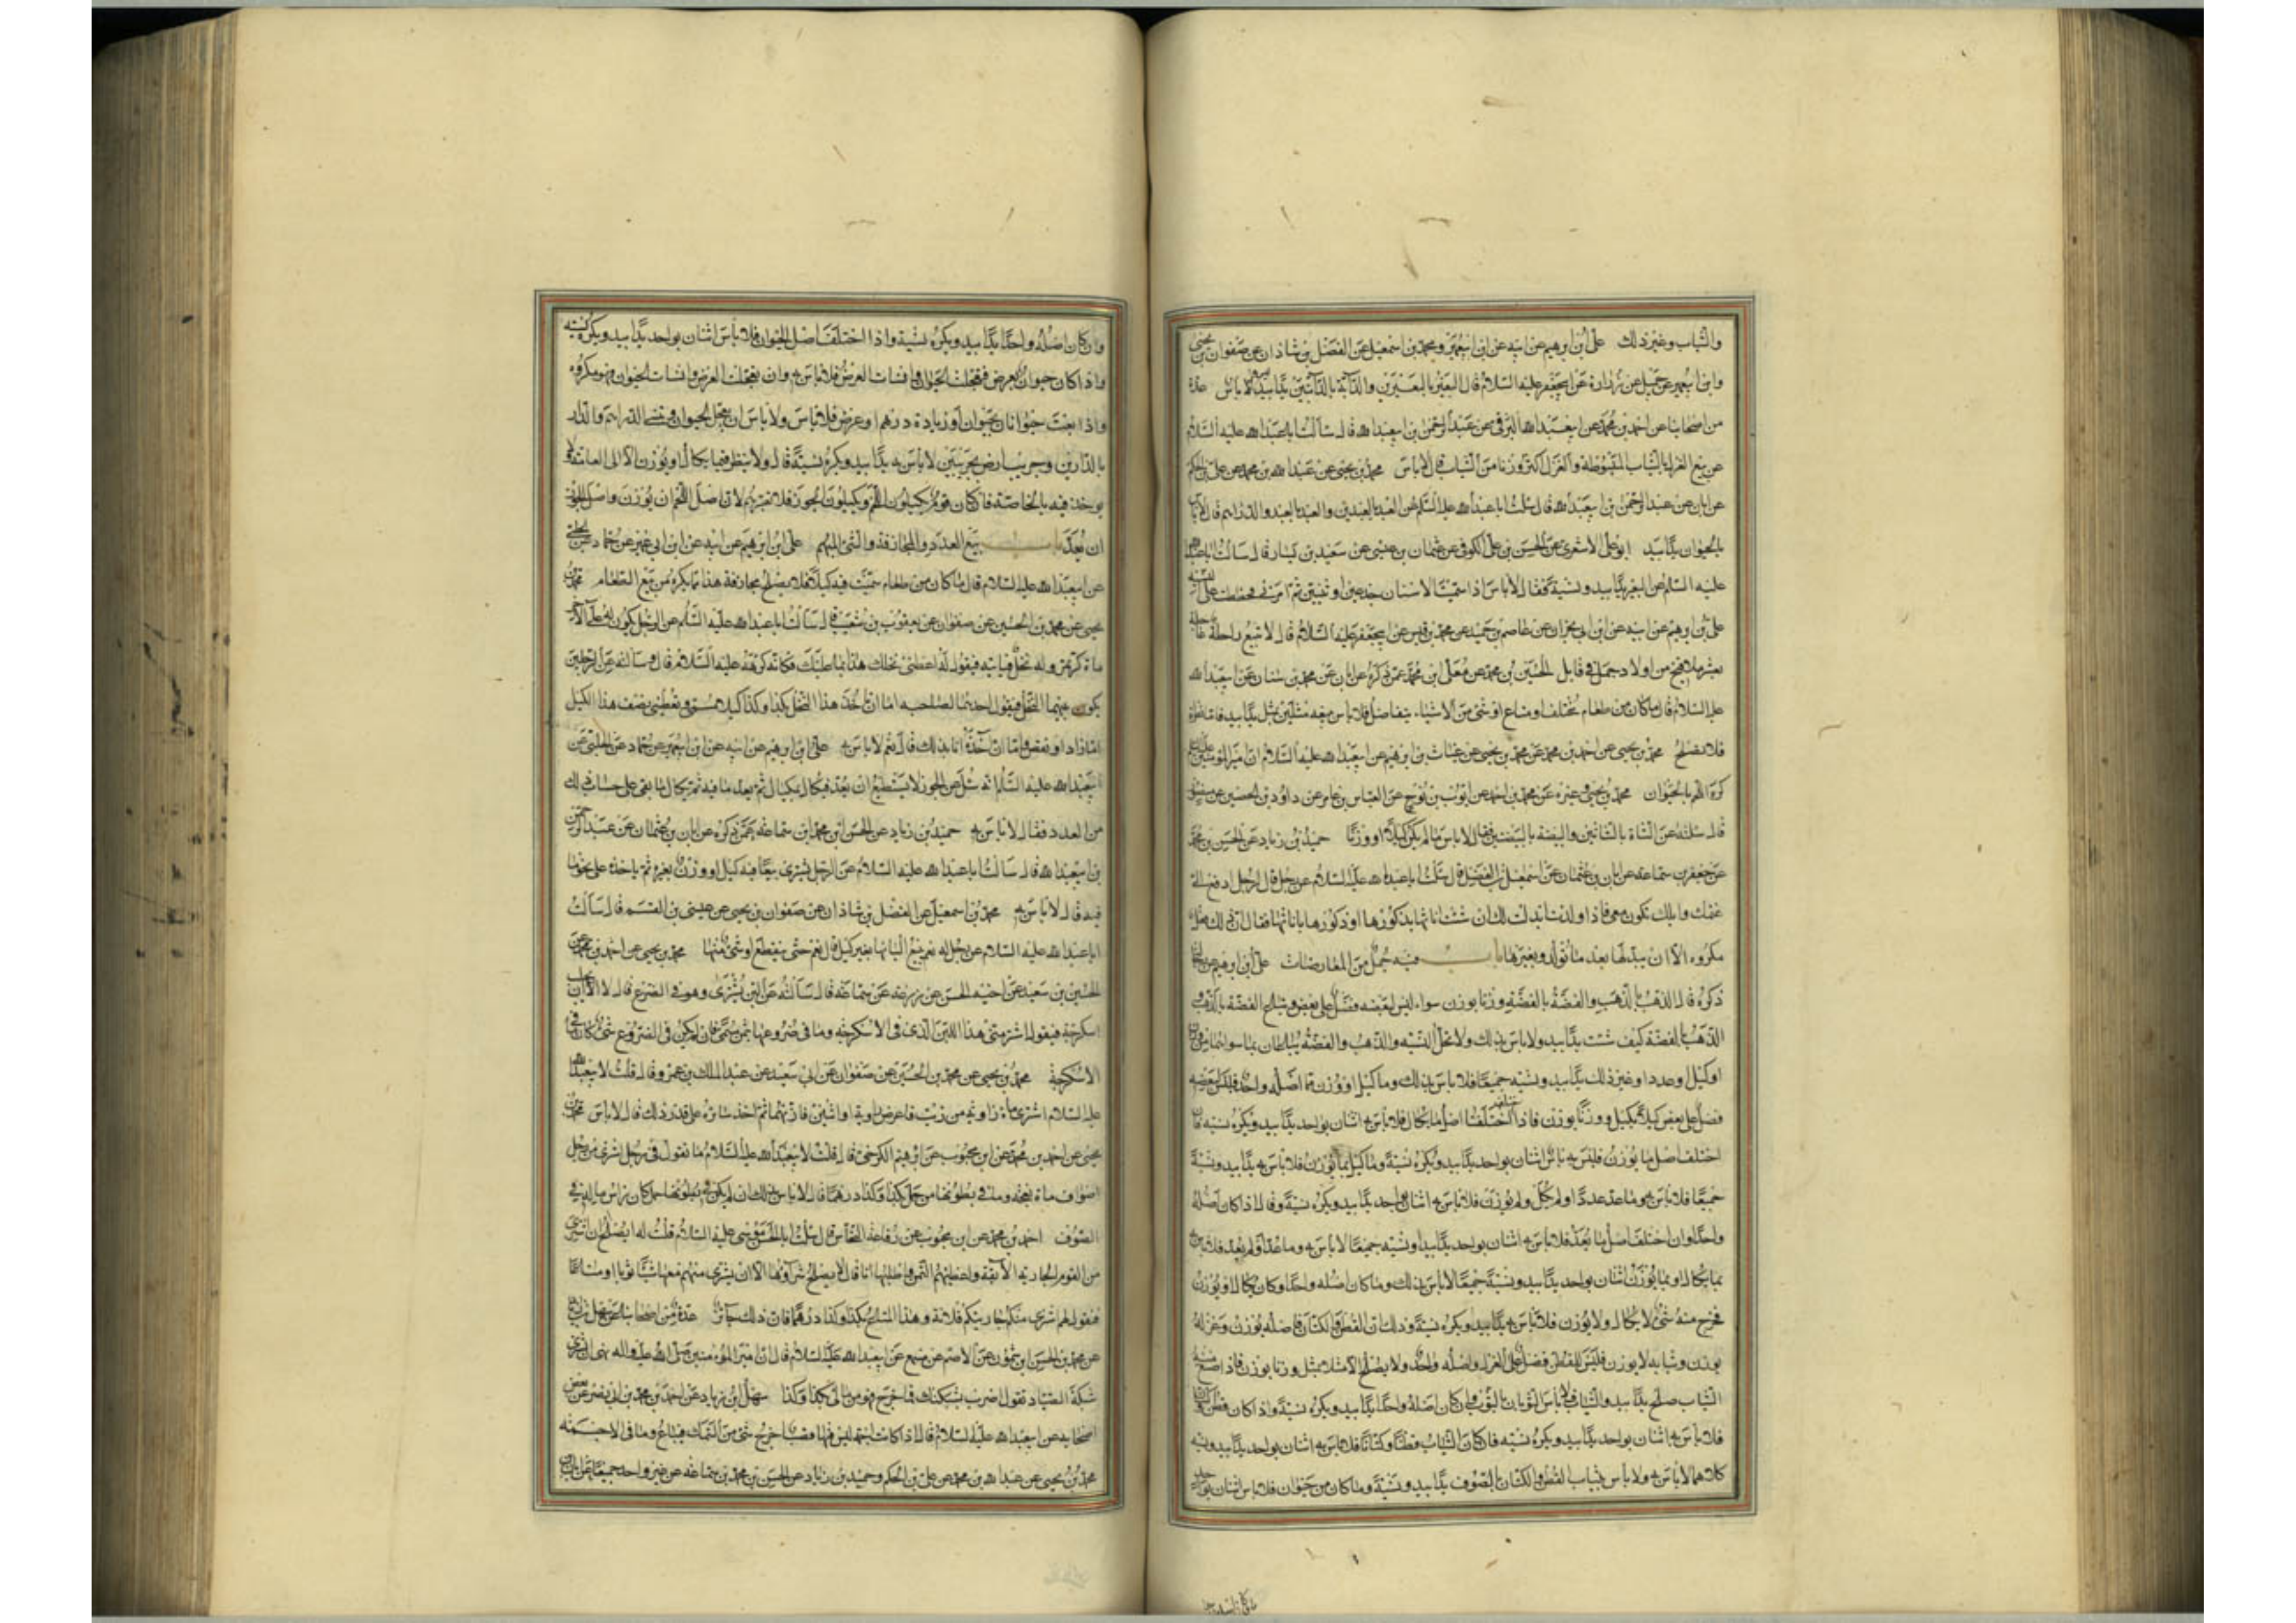 والثياب وغير ذلك علي بن ابرهيم عن ابيه عن ابن ابي عمير ومحمد بن اسمعيل عن الفضل بن شاذان عن صفوان بن يحيى
وابن ابي عمير عن جميل عن زرارة عن ابي جعفر عليه السلام قال البعير بالبعيرين والدابة بالدابتين يدًا بيد لا باس عدة
من اصحابنا عن احمد بن محمد عن ابي عبد الله البرقي عن عبد الرحمن بن ابي عبد الله قال سالت ابا عبد الله عليه السلام
عن بيع الغزل بالثياب المبسوطة والغزل اكثر وزنا من الثياب قال لا باس محمد بن يحيى عن عبد الله بن محمد عن علي بن الحكم
عن ابان عن عبد الرحمن بن ابي عبد الله قال سئلت ابا عبد الله عليه السلم عن العبد بالعبدين والعبد بالعبد والدراهم قال لا باس
بالحيوان يدًا بيد ابو علي الاشعري عن الحسن بن علي الكوفي عن عثمان بن عيسى عن سعيد بن يسار قال سالت ابا عبد الله
عليه السلم عن البعير يدًا بيد ونسية فقال لا باس اذا سميت الاسنان جذعين او ثنيين ثم امرني فخططت على النسية
علي بن ابرهيم عن ابيه عن ابن ابي نجران عن عاصم بن حميد عن محمد بن قيس عن ابي جعفر عليه السلام قال لا تبيع راحلة عاجلة
بعشر ملاقيح من اولاد جمل في قابل الحسين بن محمد عن معلى بن محمد عمن ذكره عن ابان عن محمد بن سنان عن ابي عبد الله
عليه السلام قال ما كان من طعام مختلف او متاع او شئ من الاشياء يتفاضل فلا باس ببيعه مثلين بمثل يدًا بيد فاما نظرة
فلا يصلح محمد بن يحيى عن احمد بن محمد عن محمد بن يحيى عن غياث بن ابرهيم عن ابي عبد الله عليه السلام ان امير المؤمنين عليه
كره اللحم بالحيوان محمد بن يحيى وغيره عن محمد بن احمد عن ايوب بن نوح عن العباس بن عامر عن داود بن الحصين عن منصور
قال سئلته عن الشاة بالشاتين والبيضة بالبيضتين فقال لا باس ما لم يكن كيلًا او وزنًا حميد بن زياد عن الحسن بن محمد
عن جعفر بن سماعة عن ابان بن عثمان عن اسمعيل بن الفضيل قال سئلت ابا عبد الله عليه السلام عن رجل قال لرجل ادفع الي
غنمك وابلك تكون معي فاذا ولدت ابدلت لك ان شئت اناثها بذكورها او ذكورها باناثها فقال ان ذلك فعل
مكروه الا ان يبدلها بعد ما تولد ويعيرها باب فيه جمل من المعاوضات علي بن ابرهيم عن
ذكره قال الذهب بالذهب والفضة بالفضة وزنا بوزن سواء ليس لبعضه فضل على بعض ويباع الفضة بالذهب و
الذهب بالفضة كيف شئت يدًا بيد ولا باس بذلك ولا تحل النسية والذهب والفضة يباعان بما سواهما من وزن
او كيل او عدد او غير ذلك يدًا بيد ونسية جميعًا فلا باس بذلك وما كيل او وزن مما اصله واحد فليس لبعضه
فضل على بعض كيلًا بكيل ووزنًا بوزن فاذا اختلفت اصل ما يكال فلا باس به اثنان بواحد يدًا بيد ويكره نسية فان
اختلف اصل ما يوزن فليس به باس اثنان بواحد يدًا بيد ويكره نسية وما كيل بما يوزن فلا باس به يدًا بيد ونسية
جميعًا فلا باس به وما عد عددًا ولم يكل ولم يوزن فلا باس به اثنان بواحد يدًا بيد ويكره نسية وقال اذا كان اصله
واحدًا وان اختلف اصل ما يعد فلا باس به اثنان بواحد يدًا بيد ونسية جميعًا لا باس به وما عد او لم يعد فلا باس به
بما يكال او بما يوزن اثنان بواحد يدًا بيد ونسية جميعًا لا باس بذلك وما كان اصله واحدًا وكان يكال او يوزن
فخرج منه شئ لا يكال ولا يوزن فلا باس به يدًا بيد ويكره نسية وذلك ان القطن والكتان فاصله يوزن وغزله
يوزن وثيابه لا يوزن فليس للقطن فضل على الغزل واصله واحد ولا يصلح الا مثلا بمثل وزنا بوزن فاذا صنع منه
الثياب صلح يدًا بيد والثياب لا باس الثوبان بالثوب وان كان اصله واحدًا يدًا بيد ويكره نسية واذا كان قطن وكتان
فلا باس به اثنان بواحد يدًا بيد ويكره نسيه فان كان الثياب قطنًا وكتانًا فلا باس به اثنان بواحد يدًا بيد ونسية
كلاهما لا باس به ولا باس بثياب القطن والكتان بالصوف يدًا بيد ونسية وما كان من حيوان فلا باس اثنان بواحد
وان كان اصله واحدًا يدًا بيد ويكره نسية واذا اختلف اصل الحيوان فلا باس اثنان بواحد يدًا بيد ويكره نسية
واذا كان حيوان بعرض فتعجلت الحيوان وانسات العرض فلا باس به وان تعجلت العرض وانسات الحيوان فهو مكروه
واذا بعت حيوانا بحيوان او زيادة درهم او عرض فلا باس ولا باس ان يعجل الحيوان وينسئ الدراهم والدار
بالدارين وجريب ارض بجريبين لا باس به يدًا بيد ويكره نسية قال ولا ينظر فيما يكال او يوزن الا الى العامة ولا
يوخذ فيه بالخاصة فان كان قوم يكيلون اللحم ويكيلون الجوز فلا يعتبر بهم لان اصل اللحم ان يوزن واصل الجوز
ان يعد باب بيع العدد والمجازفة والشئ المبهم علي بن ابرهيم عن ابيه عن ابن ابي عمير عن حماد عن الحلبي
عن ابي عبد الله عليه السلام قال ما كان من طعام سميت فيه كيلًا فلا يصلح مجازفة هذا مما يكره من بيع الطعام محمد بن
يحيى عن محمد بن الحسين عن صفوان عن يعقوب بن شعيب قال سالت ابا عبد الله عليه السلم عن الرجل يكون له على الاخر
ماة كر تمر وله نخل فياتيه فيقول له اعطني نخلك هذا بما عليك فكانه كرهه عليه السلام قال وسالته عن الرجلين
يكون بينهما النخل فيقول احدهما لصاحبه اما ان تاخذ هذا النخل بكذا وكذا كيلا مسمى وتعطيني نصف هذا الكيل
اما زاد او نقص واما ان آخذه انا بذلك قال نعم لا باس به علي بن ابرهيم عن ابيه عن ابن ابي عمير عن حماد عن الحلبي عن
ابي عبد الله عليه السلم انه سئل عن الجوز لا يستطيع ان يعد فيكال بمكيال ثم يعد ما فيه ثم يكال ما بقي على حساب ذلك
من العدد فقال لا باس به حميد بن زياد عن الحسن بن محمد بن سماعة عمن ذكره عن ابان بن عثمان عن عبد الرحمن
بن ابي عبد الله قال سالت ابا عبد الله عليه السلام عن الرجل يشتري بيعًا فيه كيل او وزن بغيره ثم ياخذ على نحو ما
فيه قال لا باس به محمد بن اسمعيل عن الفضل بن شاذان عن صفوان بن يحيى عن عيسى بن القسم قال سالت
ابا عبد الله عليه السلام عن رجل له نعم يبيع البانها بغير كيل قال نعم حتى ينقطع او شئ منها محمد بن يحيى عن احمد بن محمد عن
الحسين بن سعيد عن اخيه الحسن عن زرعة عن سماعة قال سالته عن اللبن يشترى وهو في الضرع قال لا الا ان يحلب
اسكرجة فيقول اشتر مني هذا اللبن الذي في الاسكرجة وما في ضروعها بثمن مسمى فان لم يكن في الضروع شئ كان في
الاسكرجة محمد بن يحيى عن محمد بن الحسين عن صفوان عن ابي سعيد عن عبد الملك بن عمرو قال قلت لابي عبد الله
عليه السلام اشتري ماة زاوية من زيت فاعرض راوية او اثنتين فازنهما ثم اخذ سائره على قدر ذلك قال لا باس محمد بن
يحيى عن احمد بن محمد عن ابن محبوب عن ابرهيم الكرخي قال قلت لابي عبد الله عليه السلام ما تقول في رجل اشترى من رجل
اصواف ماة نعجة وما في بطونها من حمل بكذا وكذا درهمًا قال لا باس بذلك ان لم يكن في بطونها حمل كان راس ماله في
الصوف احمد بن محمد عن ابن محبوب عن رفاعة النخاس قال سئلت ابا الحسن موسى عليه السلام قلت له ايصلح ان اشتري
من القوم الجارية الآبقة واعطيهم الثمن واطلبها انا قال لا يصلح شراؤها الا ان يشترى منهم معها شيًا ثوبا او متاعًا
فتقول لهم اشتري منكم جاريتكم فلانة وهذا المتاع بكذا وكذا درهمًا فان ذلك جائز عدة من اصحابنا عن سهل بن زياد
عن محمد بن الحسن بن شمون عن الاصم عن مسمع عن ابي عبد الله عليه السلام قال ان امير المومنين صلى الله عليه واله نهى ان يشترى
شبكة الصياد تقول اضرب بشبكتك فما خرج فهو من مالي بكذا وكذا سهل بن زياد عن احمد بن محمد بن ابي نصر عن بعض
اصحابه عن ابي عبد الله عليه السلام قال اذا كانت اجمة ليس فيها قصب اخرج شئ من السمك فيباع وما في الاجمة
محمد بن يحيى عن عبد الله بن محمد عن علي بن الحكم وحميد بن زياد عن الحسن بن محمد بن سماعة عن غير واحد جميعًا عن ابان